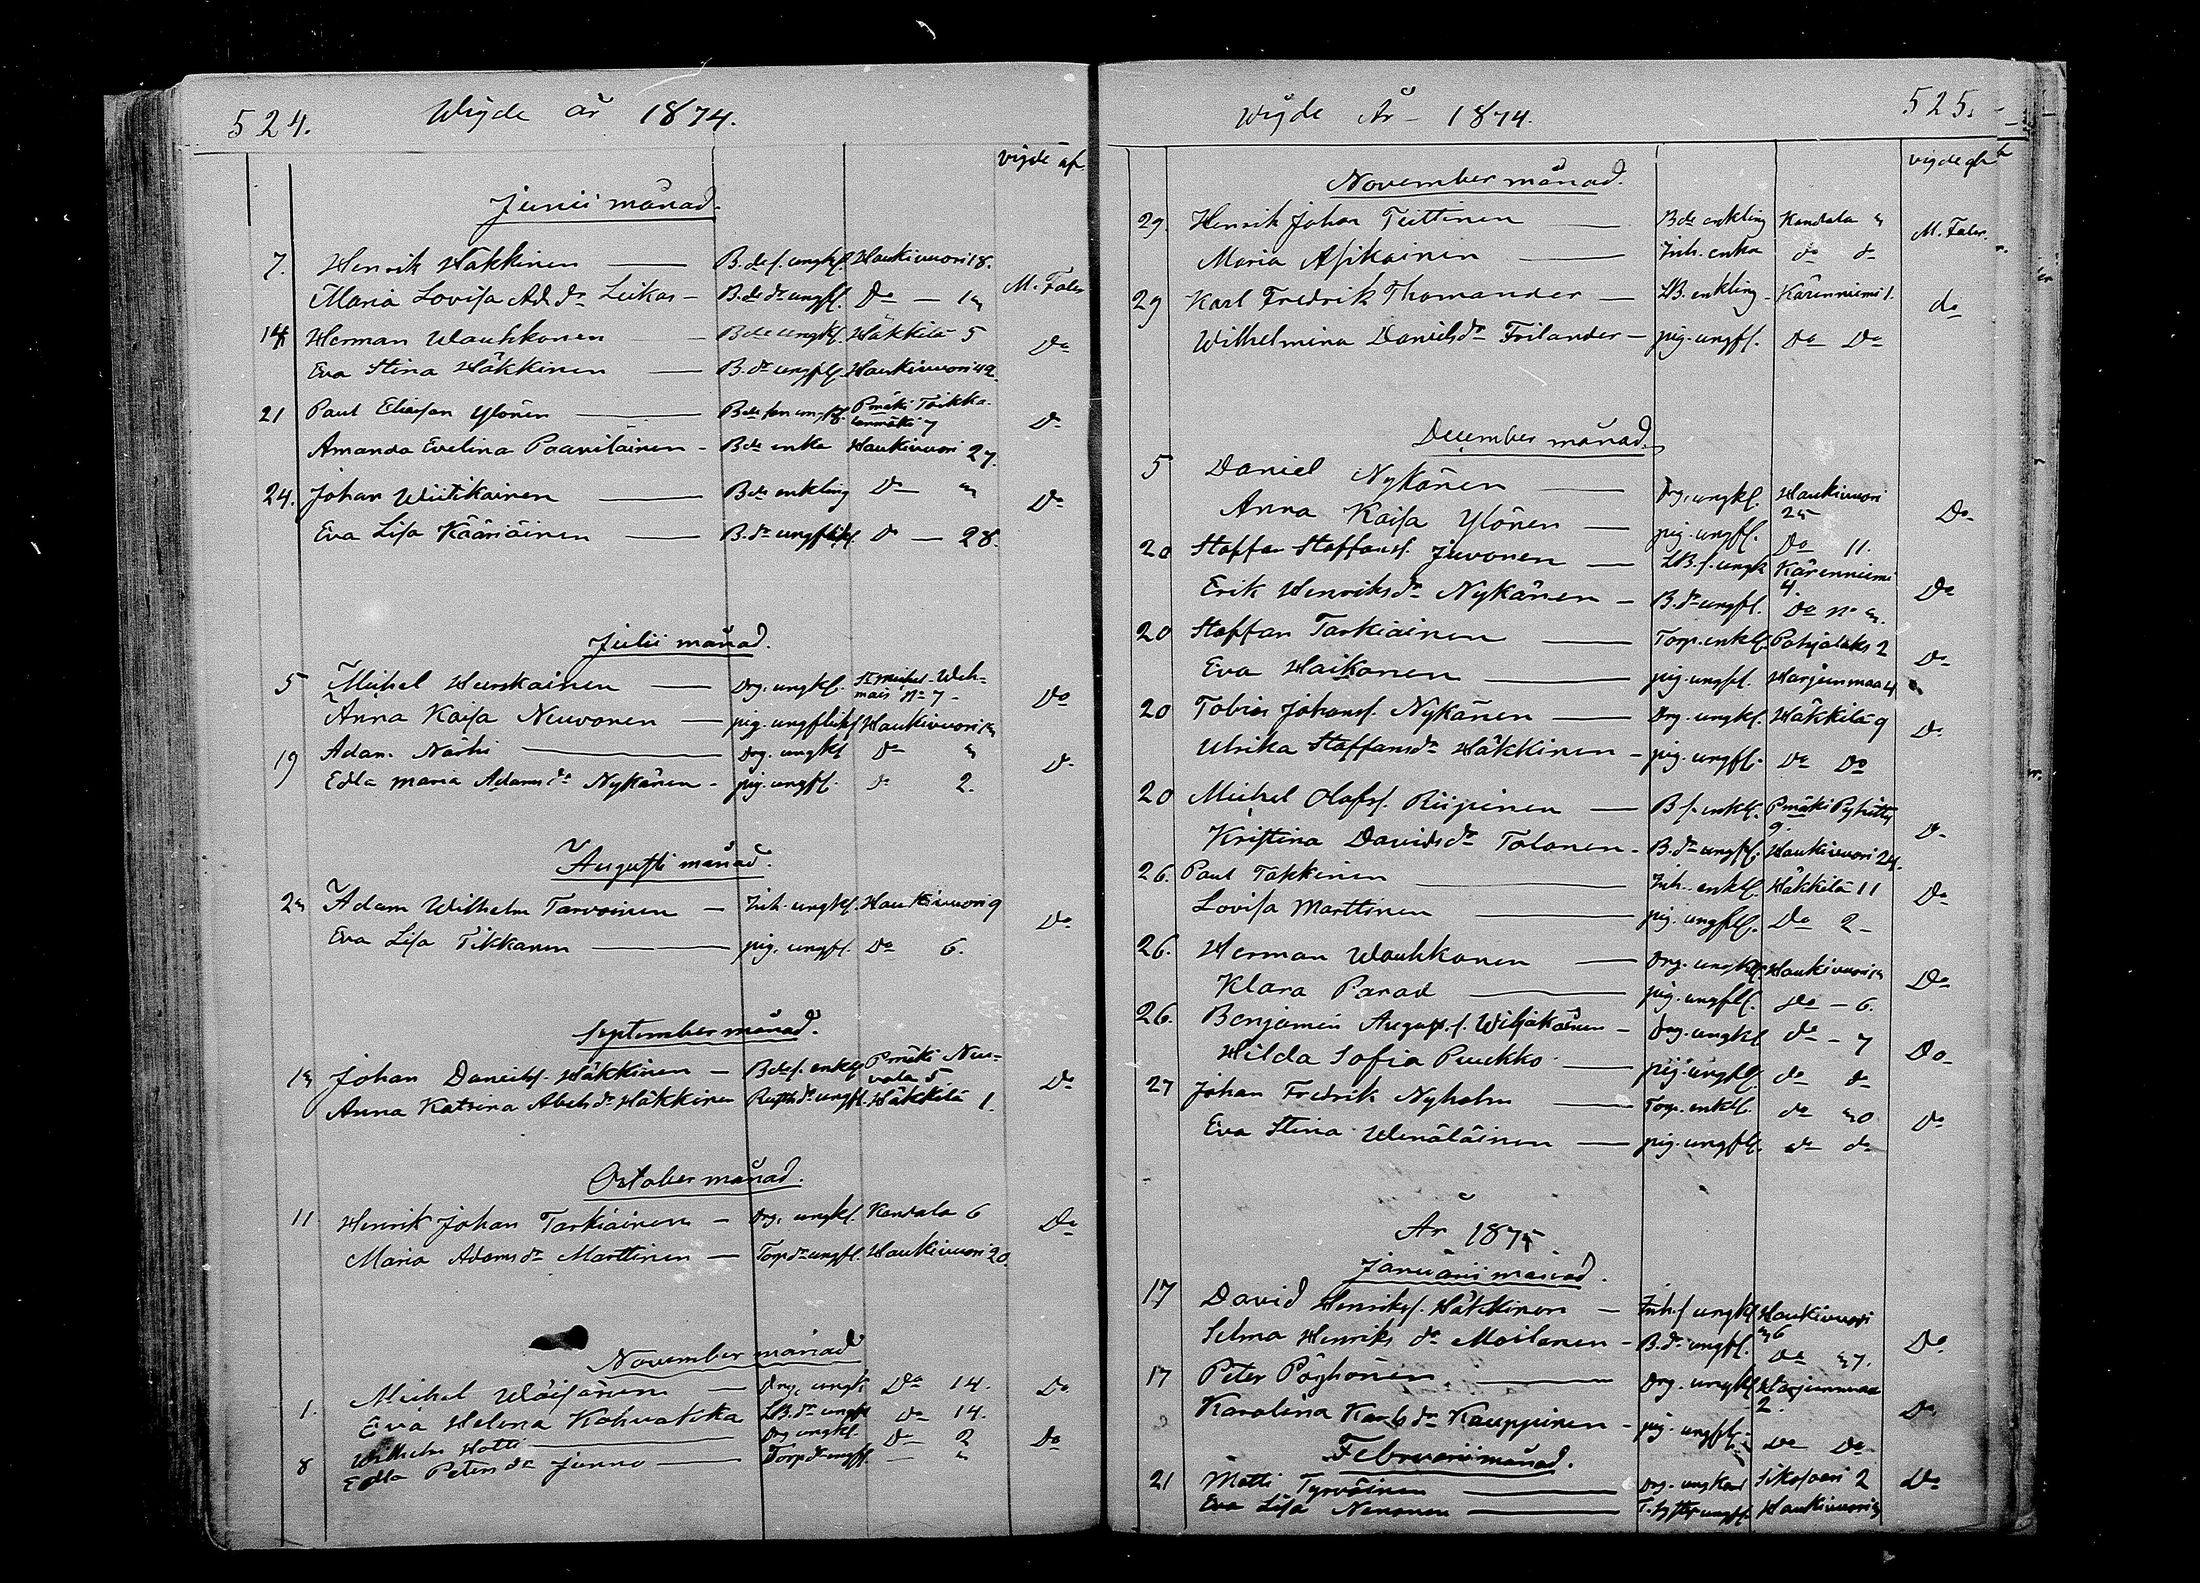 524. Wigde år 1874.
vigde af
Junii månad.
7. Henrik Häkkinen — B.de s. ungkl. Haukivuori 18.
M. Faler
Maria Lovisa Ad.dr Leikas — B.de dr ungfl. Do — 15
14 Herman Wauhkonen — Bde ungkl. Häkkilä 5 Do
Eva Stina Häkkinen — B. dr ungfl. Haukivuori 42.
21 Paul Eliasson Ylönen — Bde son ungkl. Pmäki Toikka-
lanmäki 7 Do
Amanda Evelina Paavilainen - Bde enka Haukivuori 27.
24. Johan Wiitikainen — Bde enkling Do — 5 Do
Eva Lisa Kääriäinen — B. dr ungfl. D — 28.
Julii månad.
5 Michel Heiskainen — Drg. ungkl. St Michel Weh-
mais No 7 - Do
Anna Kaisa Neuvonen — pig. ungfl. Haukivuori 5
19 Adam Narhi — Drg. ungkl Do 5 Do
Edla Maria Adams dr Nykänen - pig. ungfl. Do 2.
Augusti månad.
25 Adam Wilhelm Tarvainen — Inh. ungkl. Haukivuori 9 Do
Eva Lisa Tikkanen — pig. ungfl. Do 6.
September månad.
15 Johan Danielss. Häkkinen — Bdes. enkl. Pmäki Neu-
vola 5 Do
Anna Katrina Abels dr Häkkinen Rusth dr ungfl. Häkkilä 1.
October månad.
11 Henrik Johan Tarkiainen — Drg. ungkl. Kandala 6 Do
Maria Adams dr Marttinen — Torp dr ungfl. Haukivuori 20.
November månad
1. Michel Wäisänen — Drg. ungk. Do 14. Do
Eva Helena Kohvakka LB. dr ungfl Do 14.
8 Wilhelm Hotti — Drg ungkl. Do 2 Do
Edla Peters dr Junno — Torp dr ungfl. — "
Wigde År - 1874. 525.
vigde af
November månad.
29. Henrik Johan Teittinen — Bde enkling Kandala 5 M. Faler.
Maria Asikainen — Inh. enka do do
29 Karl Fredrik Thomander — LB. enkling - Kärenniemi 1. do
Wilhelmina Daniels dr Frilander — pig. ungfl. Do Do
December månad.
5 Daniel Nykänen — Drg. ungkl. Haukivuori
25 Do
Anna Kaisa Ylönen — pig. ungfl. Do 11.
20 Staffan Staffanss. Juvonen — LB. s. ungk Kärenniemi
4. Do
Erik Henriks dr Nykänen — B. dr ungfl. Do No 5.
20 Staffan Tarkiainen — Torp. enkl. Pohjalaks 2 Do
Eva Haikonen — pig. ungfl. Harjunmaa 4
20 Tobias Johanss. Nykänen — Drg. ungkl. Häkkilä 9 Do
Ulrika Staffans dr Häkkinen — pig. ungfl. Do Do
20 Michel Olofss. Riipinen — B s. enkl. Pmäki Pyhitty
9. Do
Kristina Davids dr Tolonen — B. dr ungfl. Haukivuori 24.
26. Paul Takkinen — Inh. enkl. Häkkilä 11 Do
Lovisa Marttinen — pig. ungfl. Do 2 -
26. Herman Wauhkonen — Drg. ungkl. Haukivuori 5 Do
Klara Parad — pig. ungfl. Do — 6.
26. Benjamin August. s. Wiljakainen — Drg. ungkl do - 7 Do
Hilda Sofia Puukko — pig. ungfl. do do
27 Johan Fredrik Nyholm — Torp. enkl. do 50 Do
Eva Stina Wenäläinen — pig. ungfl. do do
År 1875.
Januarii månad.
17 David Henrikss. Häkkinen — Inh. s ungkl Haukivuori
56 Do
Selma Henriks dr Moilanen — B. dr ungfl. Do 57.
17 Peter Pöyhönen — Drg. ungkl Harjunmaa
2. Do
Karolina Karls dr Kauppinen — pig. ungfl. Do Do
Februarii månad.
21 Matti Tyrväinen — Drg. ungkarl Sikosaari 2 Do
Eva Lisa Nenonen — ungfl. Haukivuori 5